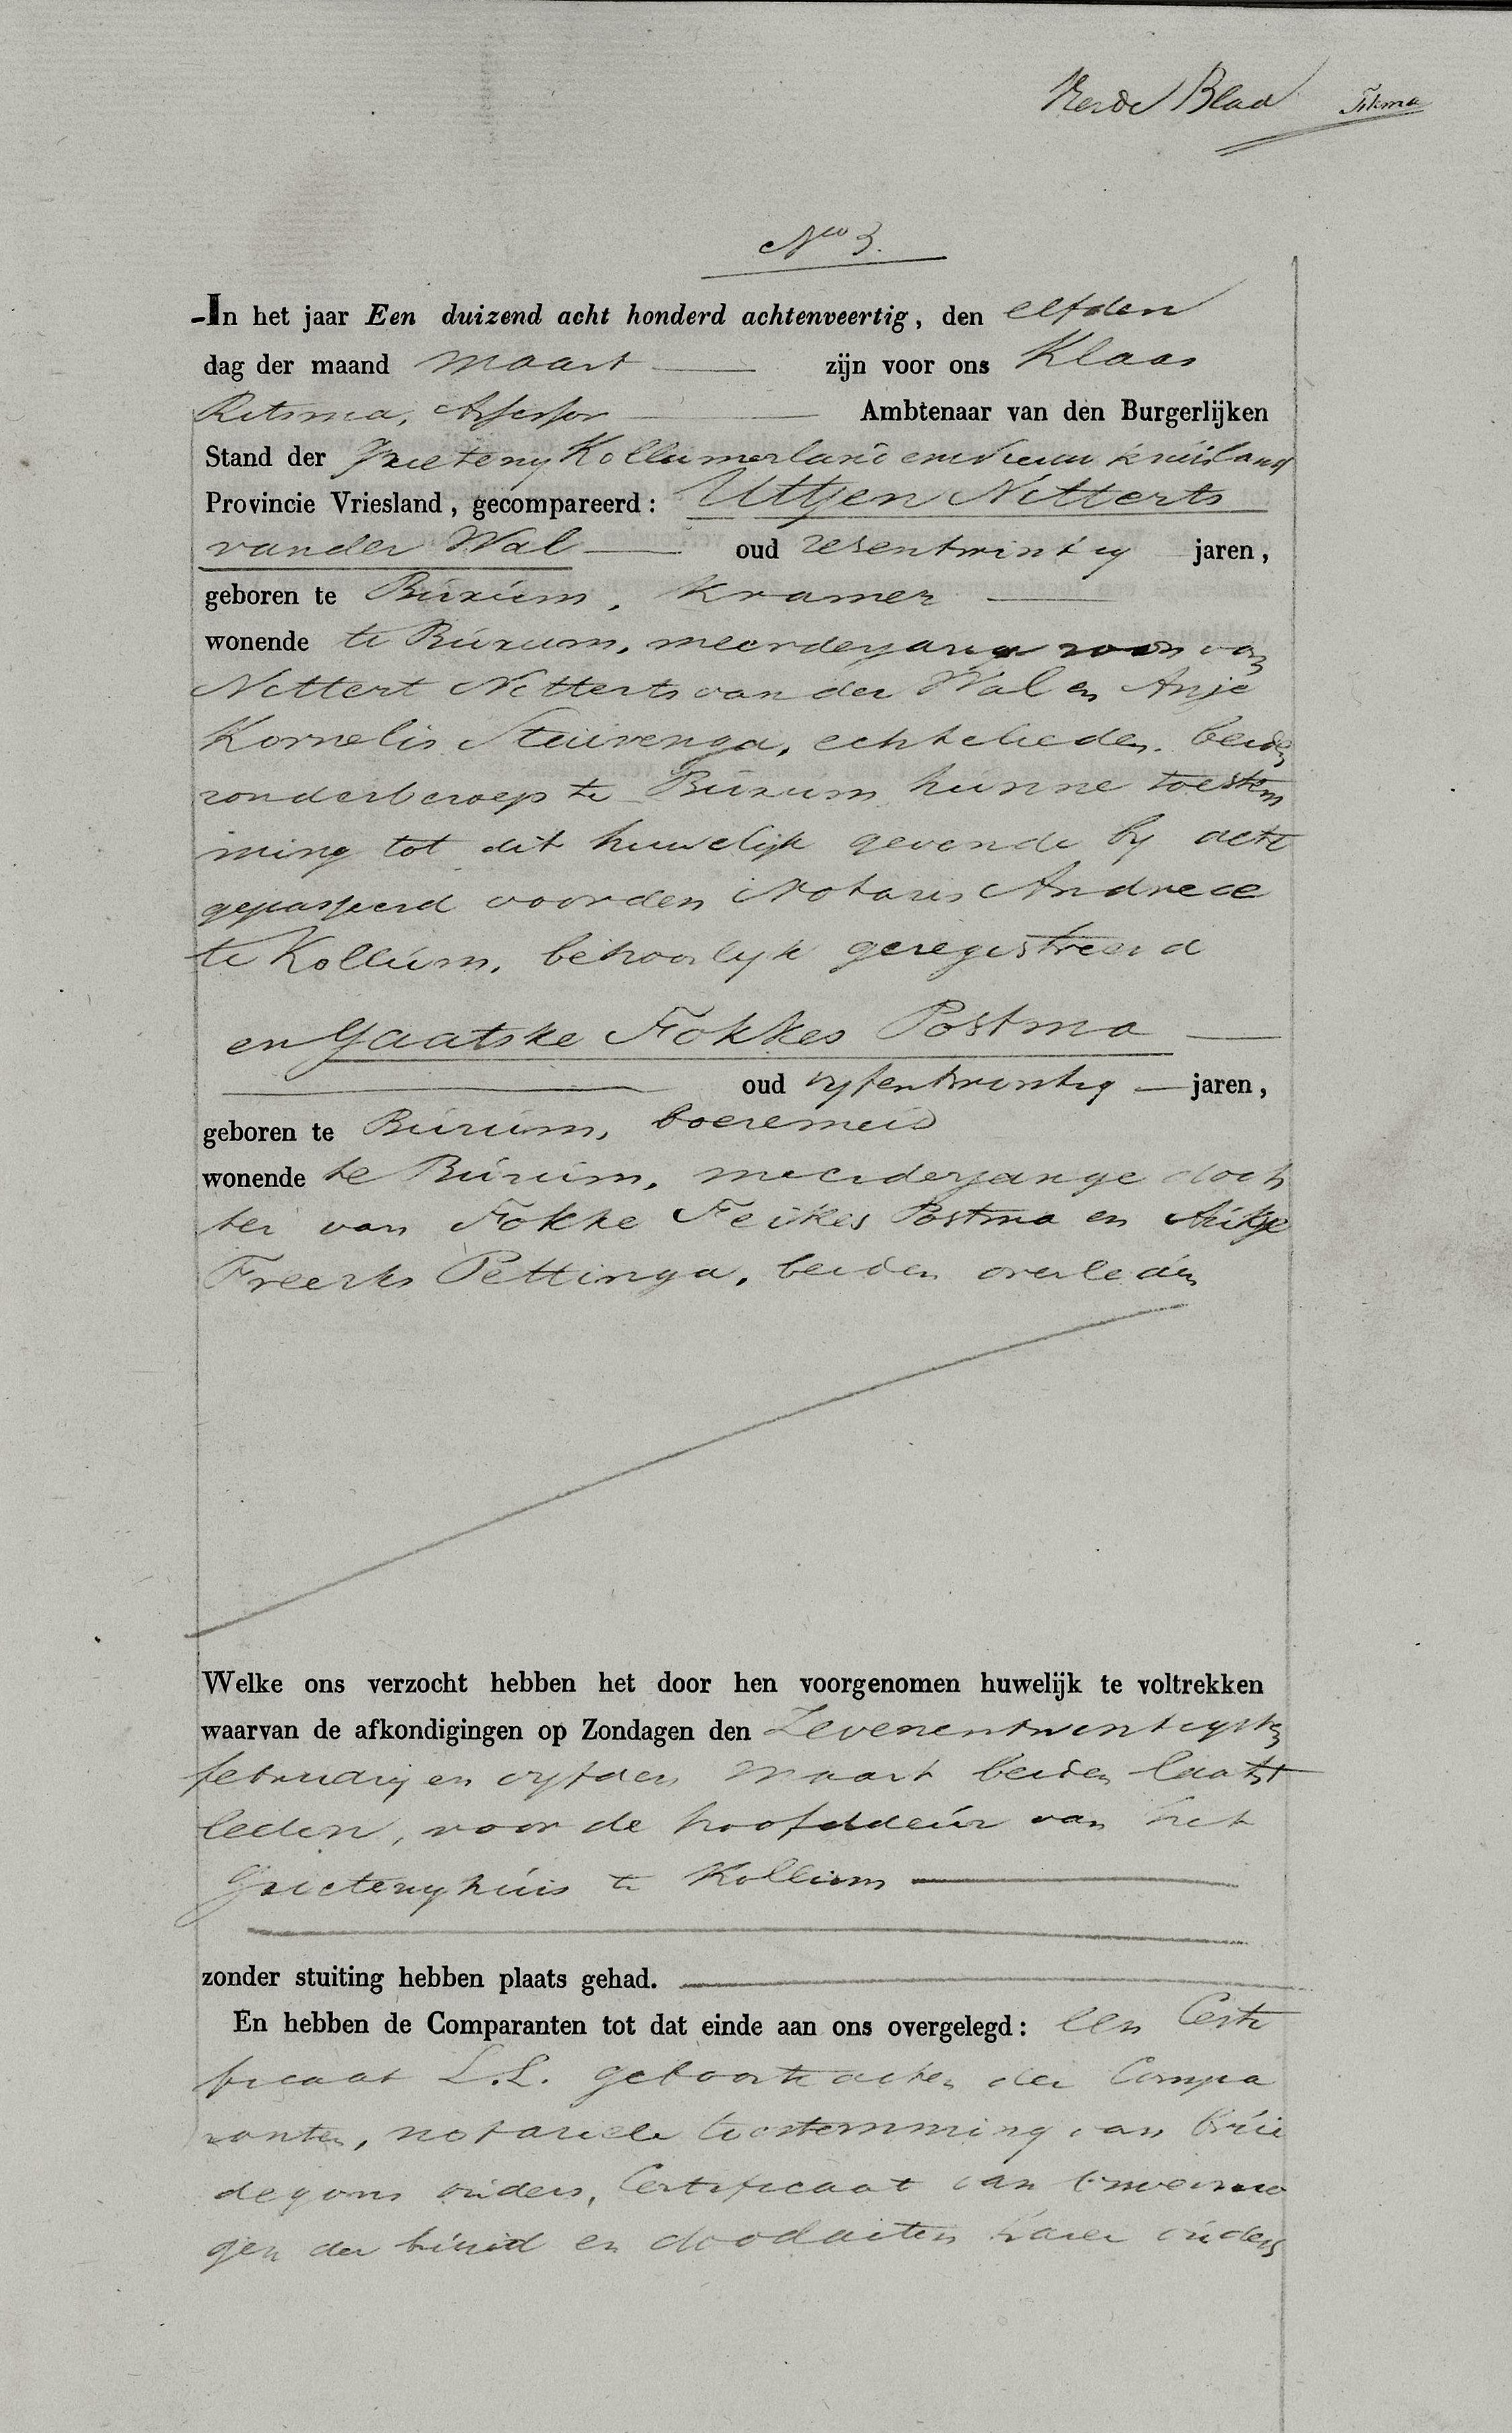 Derde Blad Fokma
No 3.
In het jaar Een duizend acht honderd achtenveertig, den elfden
dag der maand maart zijn voor ons Klaas
Ritsma, Assessor Ambtenaar van den Burgerlijken
Stand der Grieteny Kollumerland en Nieuw kruisland
Provincie Vriesland, gecompareerd: Uitjen Nitterts
van der Wal oud zesentwintig jaren,
geboren te Burum, Kramer
wonende te Burum, meerderjarige zoon van
Nittert Nitterts van der Wal en Anje
Kornelis Steuvenga, echtelieden, beiden
zonder beroep te Burum hunne toestem
ming tot dit huwelijk gevende by acte
gepasseerd voor den Notaris Andreae
te Kollum, behoorlyk geregistreerd
en Gaatske Fokkes Postma
oud vyfentwintig jaren,
geboren te Burum, boeremeid
wonende te Burum, meerderjarige doch
ter van Fokke Feikes Postma en Aukje
Freerks Pettinga, beiden overleden
Welke ons verzocht hebben het door hen voorgenomen huwelijk te voltrekken
waarvan de afkondigingen op Zondagen den Zevenentwintigsten
februarij en vyfden Maart beiden laatst
leden, voor de hoofddeur van het
Grietenyhuis te Kollum
zonder stuiting hebben plaats gehad.
En hebben de Comparanten tot dat einde aan ons overgelegd: een Certi
ficaat L.L. geboorte acten der Compa
ranten, notariele toestemming van brui
degoms ouders, Certificaat van onvermo
gen der bruid en doodacten harer ouders